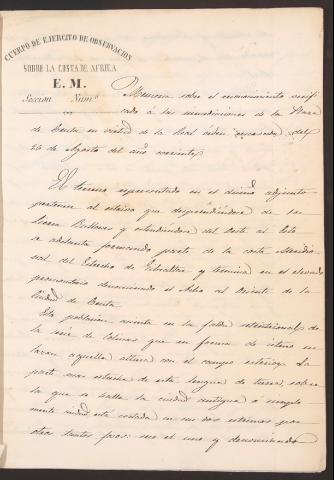 CUERPO DE EJERCITO DE OBSERVACION
SOBRE LA COSTA DE AFRICA
E. M.
Seccion Num.º
Memoria sobre el reconocimiento verifi
cado á las inmediaciones de la Plaza
de Ceuta en virtud de la Real orden del
24 de Agosto del año corriente
El terreno representado en el diseño adjunto
pertenece al estrivo que desprendiéndose de
Sierra Bullones y estendiéndose del Oeste al Este
se adelanta formando parte de la costa Meridio
nal del Estrecho de Gibraltar y termina en el elevado
promontorio denominado el Acho al Oriente de la
Ciudad de Ceuta.
Esta poblacion asienta en la falda setentrional de
la serie de Colinas que en forma de istmo en
lazan aquella altura con el campo esterior. La
parte mas estrecha de esta lengua de tierra, sobre
la que se halla la ciudad antigua ó simple
mente ciudad está cortada en sus dos estremos por
otros tantos fosos: uno el uno y denominado